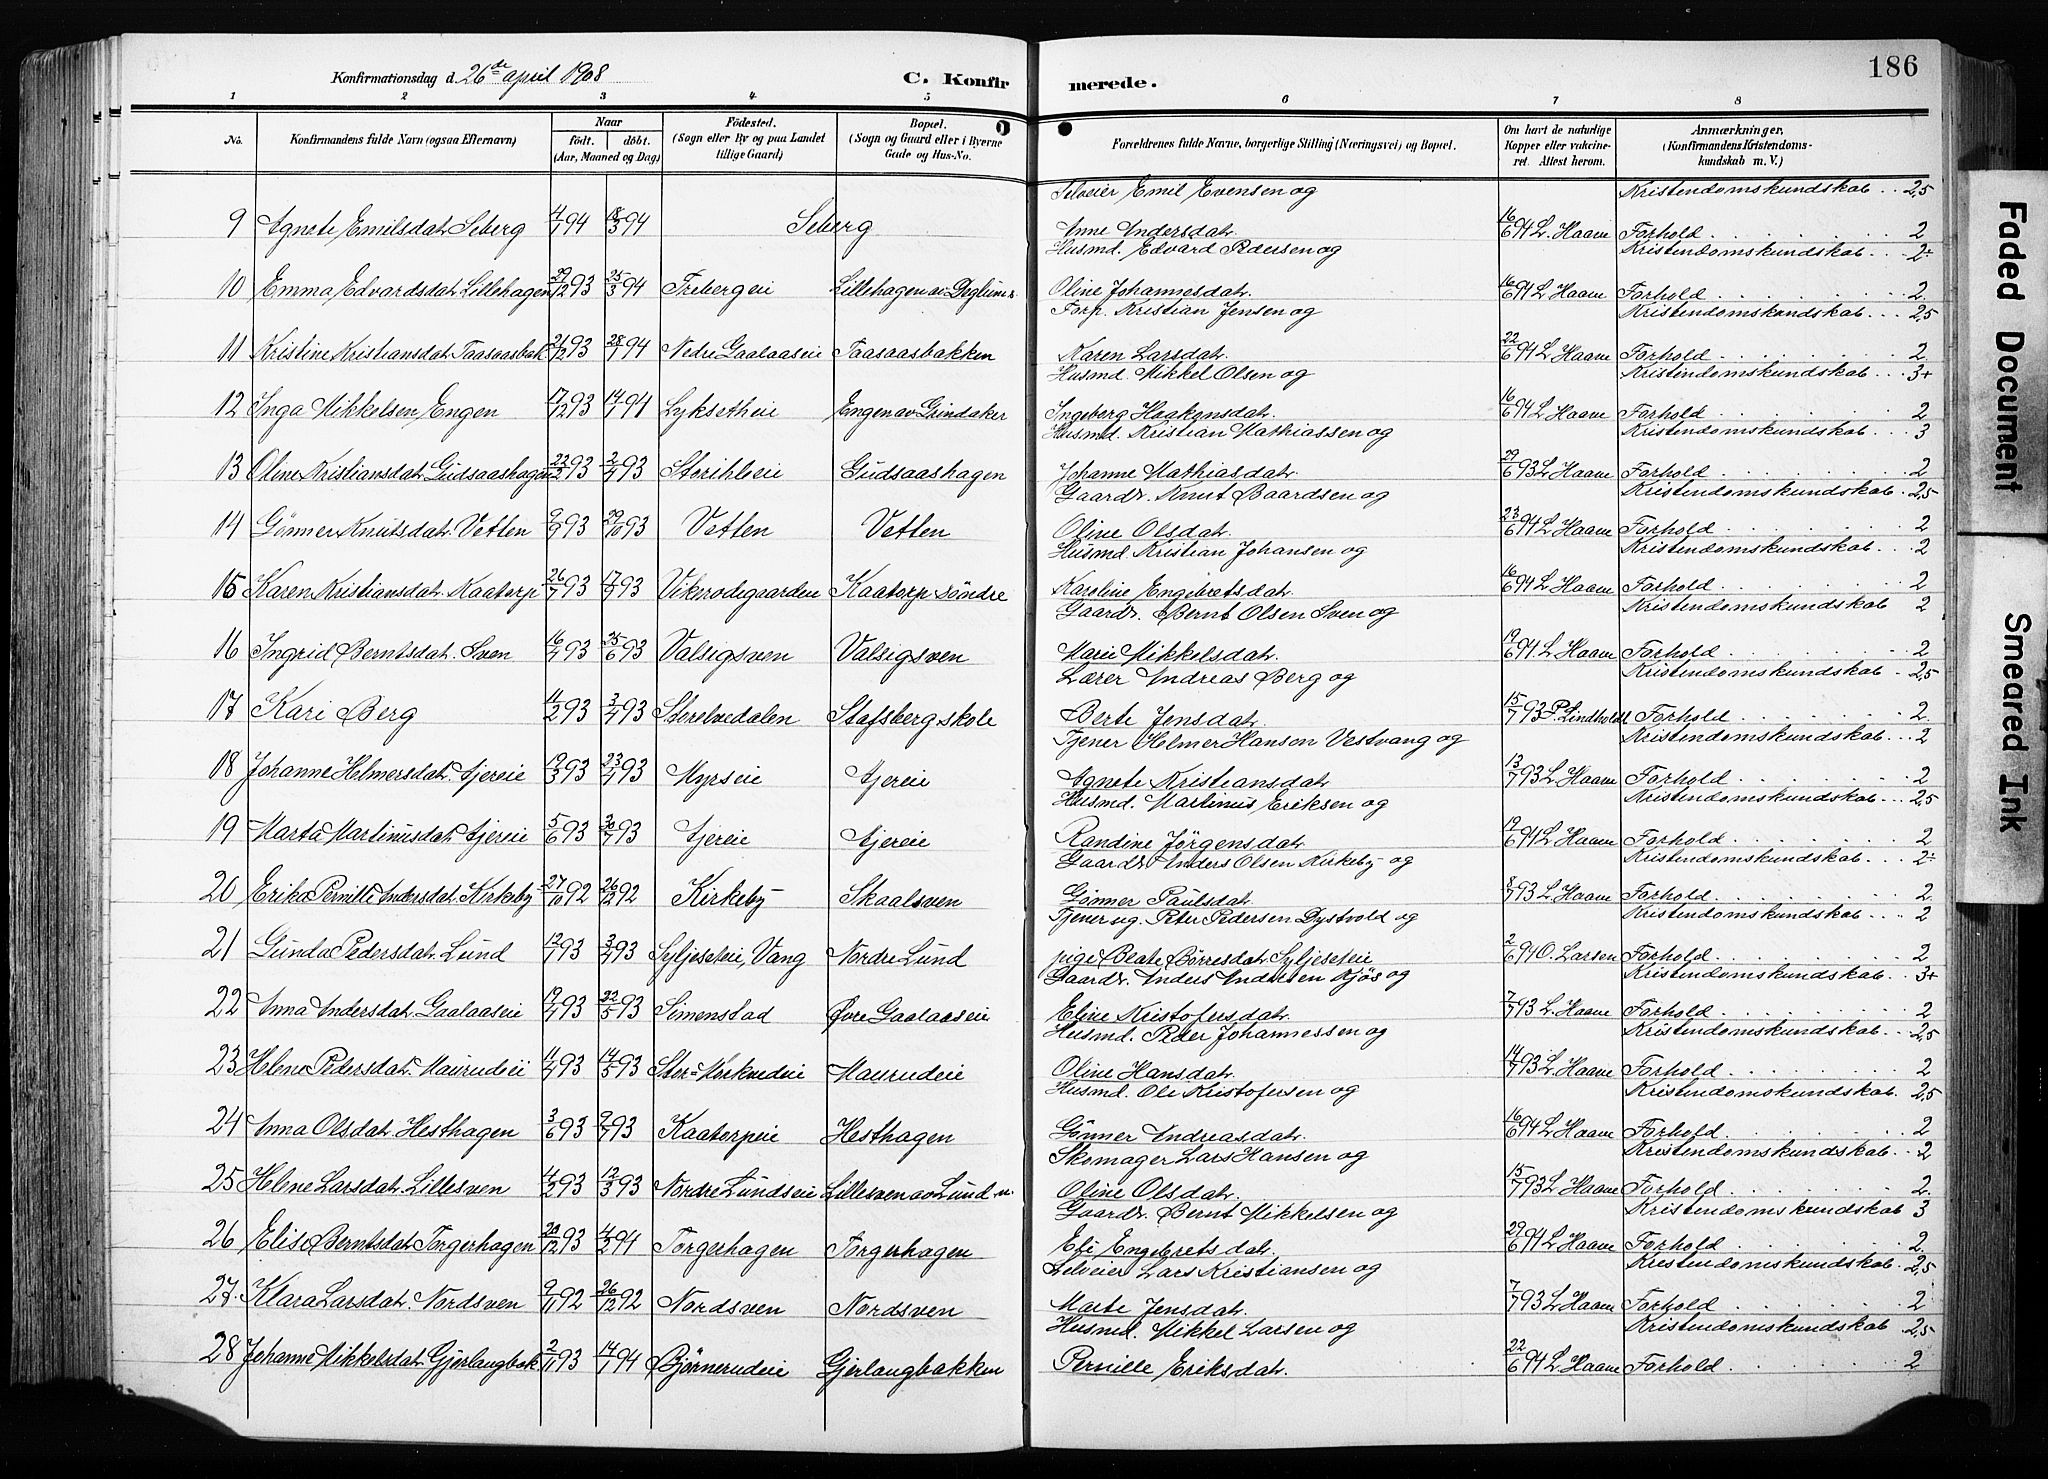 Konfirmationsdag d. 26de april 1908 C. Konfirmerede. 186
1 2 3 4 5 6 7 8
No. Konfirmandens fulde Navn (ogsaa Efternavn) Naar født. døbt. (Aar, Maaned og Dag) Fødested. (Sogn eller By og paa Landet tillige Gaard) Bopæl. (Sogn og Gaard eller i Byerne Gade og Hus-No. Forældrenes fulde Navne, borgerlige Stilling (Næringsvei) og Bopæl. Om havt de naturlige Kopper eller vakcineret. Attest herom. Anmærkninger, (Konfirmandens Kristendomskundskab m. V.)
Selveier Emil Evensen og Kristendomskundskab 2,5
9 Agnete Emilsdat. Seberg 4/1 94 18/3 94 Seberg Anne Andersdat. 16/6 94 L. Haave Forhold 2
Husmd. Edvard Pedersen og Kristendomskundskab 2÷
10 Emma Edvardsdat. Lillehagen 29/12 93 25/3 94 Trebergeie Lillehagen av Deglum s. Oline Johannesdat. 16/6 94 L. Haave Forhold 2
Forp. Kristian Jensen og Kristendomskundskab 2,5
11 Kristine Kristiansdat. Taasaasbak. 21/12 93 28/1 94 Nedre Gaalaaseie Taasaasbakken Karen Larsdat. 22/6 94 L. Haave Forhold 2
Husmd. Mikkel Olsen og Kristendomskundskab 3+
12 Inga Mikkelsen Engen 17/12 93 14/1 94 Lyksetheie Engen av Grindaker Ingeborg Haakensdat. 16/6 94 L. Haave Forhold 2
Husmd. Kristian Mathiassen og Kristendomskundskab 3
13 Oline Kristiansdat. Gudsaashagen 22/2 93 2/4 93 Storihleie Gudsaashagen Johanne Mathiasdat. 29/6 93 L. Haave Forhold 2
Gaardr. Knut Baardsen og Kristendomskundskab 2,5
14 Gønner Knutsdat. Vetten 9/9 93 29/10 93 Vetten Vetten Oline Olsdat. 23/6 94 L. Haave Forhold 2
Husmd. Kristian Johansen og Kristendomskundskab 2
15 Karen Kristiansdat. Kaatorp 26/7 93 17/9 93 Vikerødegaarden Kaatorp søndre Karoline Engebretsdat. 16/6 94 L. Haave Forhold 2
Gaardr. Bernt Olsen Sven og Kristendomskundskab 2
16 Ingrid Berntsdat. Sven 16/4 93 25/6 93 Valsigsven Valsigsven Marie Mikkelsdat. 19/6 94 L. Haave Forhold 2
Lærer Andreas Berg og Kristendomskundskab 2,5
17 Kari Berg 11/2 93 3/4 93 Storelvedalen Stafsberg skole Berte Jensdat. 15/7 93 P. Lindholdt Forhold 2
Tjener Helmer Hansen Vestvang og Kristendomskundskab 2
18 Johanne Helmersdat. Ajereie 19/3 93 23/4 93 Myrseie Ajereie Agnete Kristiansdat. 13/7 93 L. Haave Forhold 2
Husmd. Martinus Eriksen og Kristendomskundskab 2,5
19 Marta Martinusdat. Ajereie 5/6 93 30/7 93 Ajereie Ajereie Randine Jörgensdat. 19/6 94 L. Haave Forhold 2
Gaardr. Anders Olsen Kirkeby og Kristendomskundskab 2÷
20 Erika Pernille Andersdat. Kirkeby 27/10 92 26/12 92 Kirkeby Skaalsven Gønner Paulsdat. 8/7 93 L. Haave Forhold 2
Tjener ug. Peter Pedersen Dystvold og Kristendomskundskab 2
21 Gunda Pedersdat. Lund 12/1 93 3/4 93 Syljeseteie, Vang Nordre Lund pige Beate Børresdat. Syljeseteie 2/6 94 O. Larsen Forhold 2
Gaardr. Anders Andersen Kjös og Kristendomskundskab 3+
22 Anna Andersdat. Gaalaaseie 19/4 93 22/5 93 Simenstad Øvre Gaalaaseie Eline Kristofersdat. 7/7 93 L. Haave Forhold 2
Husmd. Peder Johannessen og Kristendomskundskab 2,5
23 Helene Pedersdat. Maurudeie 11/4 93 14/5 93 Stor-Mørkvedeie Maurudeie Oline Hansdat. 14/7 93 L. Haave Forhold 2
Husmd. Ole Kristofersen og Kristendomskundskab 2,5
24 Anna Olsdat. Hesthagen 3/6 93 9/7 93 Kaatorpeie Hesthagen Gønner Andreasdat. 16/6 94 L. Haave Forhold 2
Skomager Lars Hansen og Kristendomskundskab 2
25 Helene Larsdat. Lillesven 4/2 93 12/3 93 Nordre Lundseie Lillesven av Lund n. Oline Olsdat. 15/7 93 L. Haave Forhold 2
Gaardr. Bernt Mikkelsen og Kristendomskundskab 3
26 Elise Berntsdat. Torgerhagen 20/12 93 4/2 94 Torgerhagen Torgerhagen Eli Engebretsdat. 29/6 94 L. Haave Forhold 2
Selveier Lars Kristiansen og Kristendomskundskab 2,5
27. Klara Larsdat. Nordsven 9/11 92 26/12 92 Nordsven Nordsven Marte Jensdat. 7/7 93 L. Haave Forhold 2
Husmd. Mikkel Larsen og Kristendomskundskab 2,5
28 Johanne Mikkelsdat. Gjerlangbak. 2/11 93 14/1 94 Bjørnerudeie Gjerlangbakken Pernille Eriksdat. 22/6 94 L. Haave Forhold 2
Faded Document
Smeared Ink